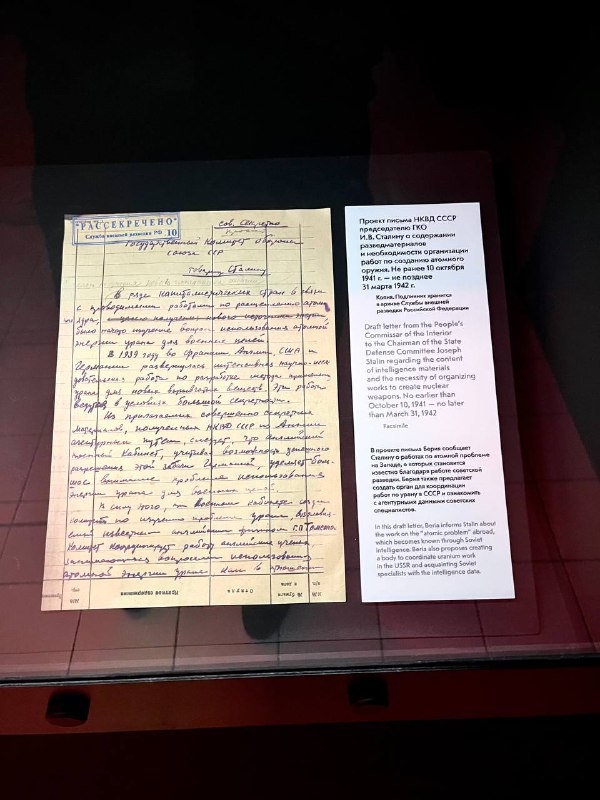 "РАССЕКРЕЧЕНО"
Служба внешней разведки РФ 10
Сов. Секретно
Государственный Комитет Обороны
Союза ССР
товарищу Сталину
В ряде капиталистических стран в связи
с проводимыми работами по расщеплению атомн.
ядра
было начато изучение вопроса использования атомной
энергии урана для военных целей.
В 1939 году во Франции, Англии, США и
Германии развернулась интенсивная научно-иссле
довательская работа по разработке метода применения
урана для новых взрывчатых веществ. Эти работы
ведутся в условиях большой секретности.
Из приложения совершенно секретных
материалов, полученных НКВД СССР из Англии
агентурным путем, следует, что английский
военный кабинет, учитывая возможность успешного
разрешения этой задачи Германией, уделяет боль-
шое внимание проблеме использования
энергии урана для военных целей.
В силу того, что военном кабинете создан
комитет по изучению проблемы урана, возглавля-
емый известным английским физиком
Комитет координирует работу английских ученых,
занимающихся вопросом использования
атомной энергии урана как в отношении
Проект письма НКВД СССР
председателю ГКО
И.В. Сталину о содержании
разведматериалов
и необходимости организации
работ по созданию атомного
оружия. Не ранее 10 октября
1941 г. — не позднее
31 марта 1942 г.
Копия. Подлинник хранится
в архиве Службы внешней
разведки Российской Федерации
Draft letter from the People's
Commissar of the Interior
to the Chairman of the State
Defense Committee Joseph
Stalin regarding the content
of intelligence materials
and the necessity of organizing
works to create nuclear
weapons. No earlier than
October 10, 1941 — no later
than March 31, 1942
Facsimile
В проекте письма Берия сообщает
Сталину о работах по атомной проблеме
на Западе, о которых становится
известно благодаря работе советской
разведки. Берия также предлагает
создать орган для координации
работ по урану в СССР и ознакомить
с агентурными данными советских
специалистов.
In this draft letter, Beria informs Stalin about
the work on the "atomic problem" abroad,
which becomes known through Soviet
intelligence. Beria also proposes creating
a body to coordinate uranium work
in the USSR and acquainting Soviet
specialists with the intelligence data.